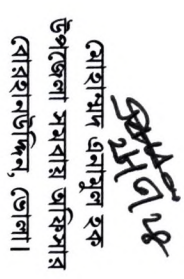 মোহাম্মদ এনামুল হক
উপজেলা সমবায় অফিসার
বোরহানউদ্দিন, ভোলা।